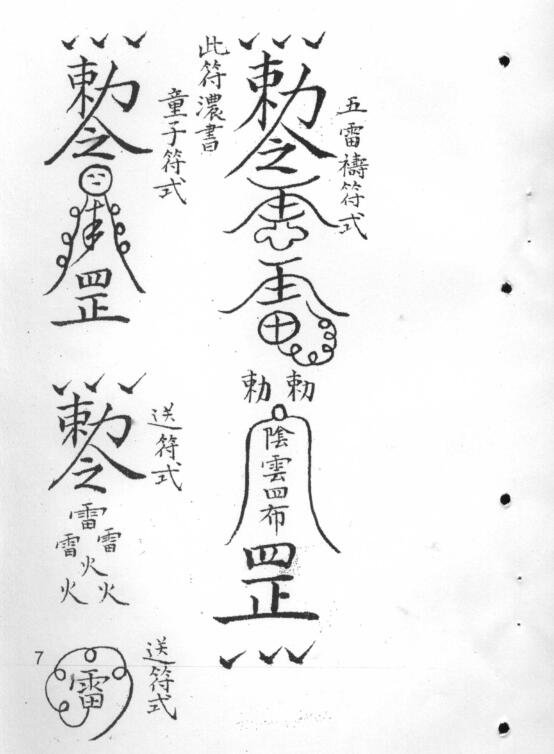 五雷禱符式
勅令
雷
雷
勅 勅
陰雲四布
罡
此符濃書
童子符式
勅令
罡
送符式
勅令
雷
雷 雷
火
火 火
送符式
雷
7